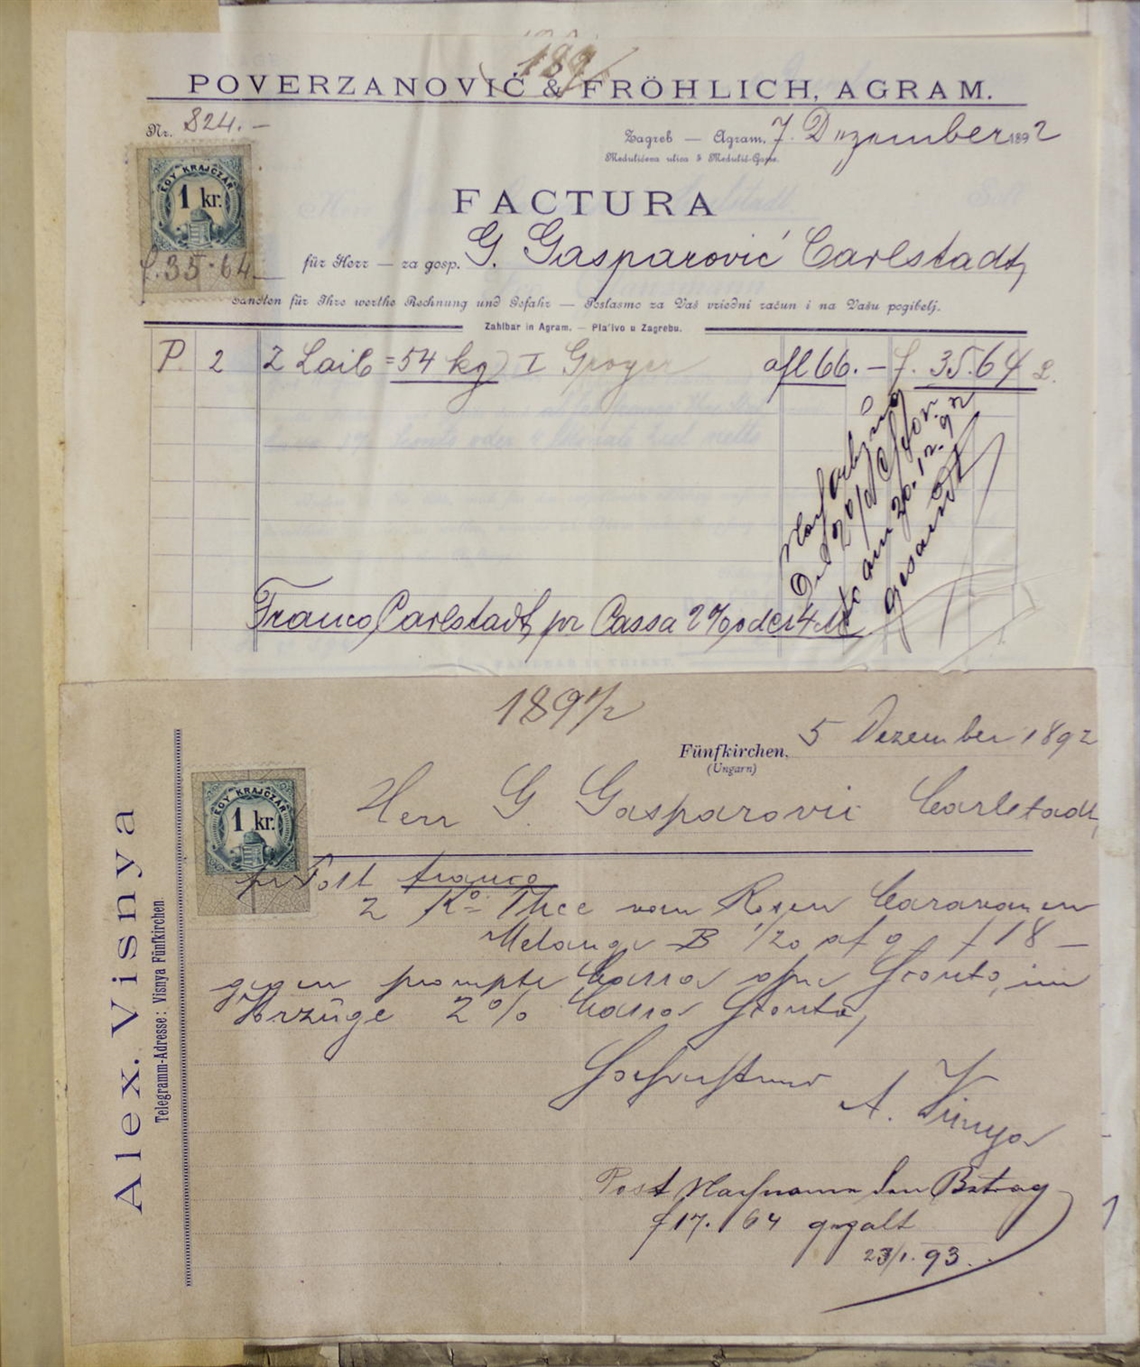 189/
POVERZANOVIĆ & FRÖHLICH, AGRAM.
Nr. 824.-
Zagreb — Agram, 7. Dezember 1892
Medulićeva ulica 3 Medulić-Gasse.
EGY KRAJCZÁR
1 kr.
f. 35.64
FACTURA
für Herr — za gosp. G. Gasparović Carlstadt,
Sandten für Ihre werthe Rechnung und Gefahr — Poslasmo za Vaš vriedni račun i na Vašu pogibelj.
Zahlbar in Agram. — Pla'ivo u Zagrebu.
P. 2 2 Laib = 54 kg) I Groyer afl 66.— f. 35.64
2% am 20.12.92
gesandt
Franco Carlstadt, pr Cassa 2% oder 4 M
1891/2
Fünfkirchen, 5 Dezember 1892
(Ungarn)
Herr G Gasparovic Carlstadt,
EGY KRAJCZÁR
1 kr.
Alex. Visnya
Telegramm-Adresse: Visnya Fünfkirchen.
pr Post franco
2 Ko Thee Caravanen
Melange B 1/20 f 18 —
gegen prompte Cassa ohne Sconto, im
Vorzuge 2% Cassa Sconto,
Hochachtend
A. Visnya
Post Nachname den Betrag
f 17. 64 gezalt
23/1. 93.
1